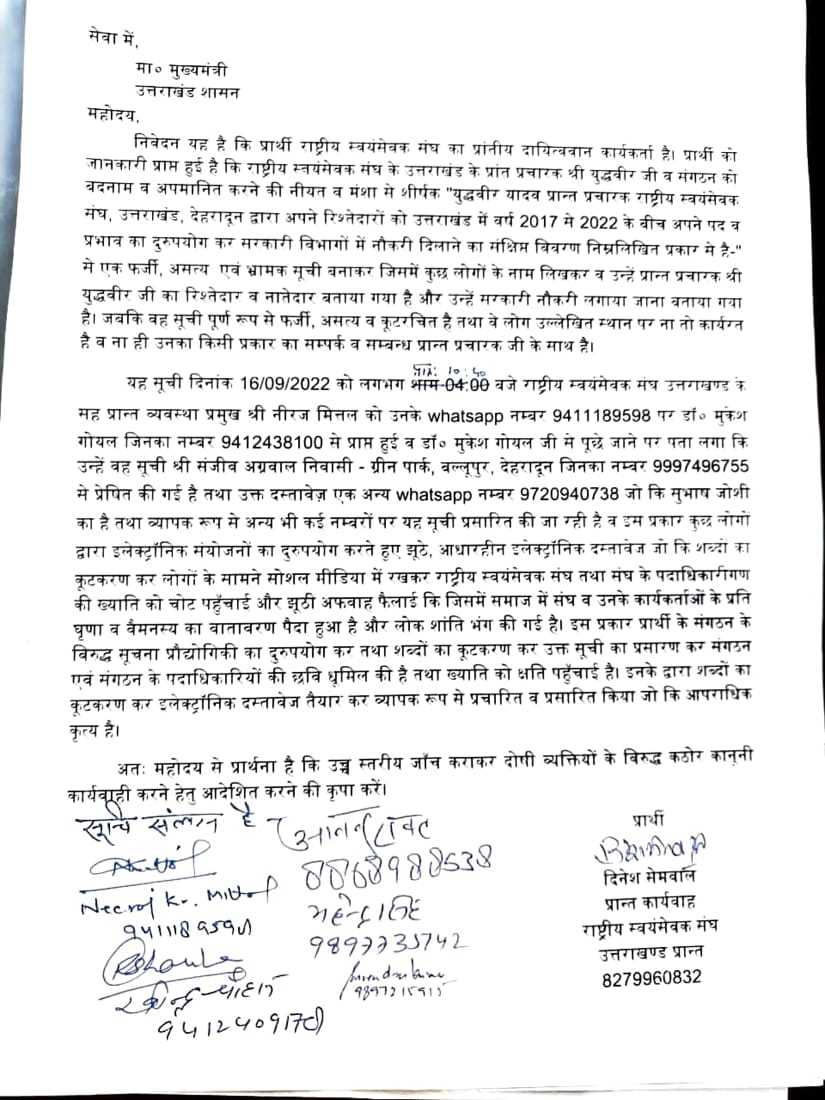 सेवा में,
मा० मुख्यमंत्री
उत्तराखंड शासन
महोदय,
निवेदन यह है कि प्रार्थी राष्ट्रीय स्वयंसेवक संघ का प्रांतीय दायित्ववान कार्यकर्ता है। प्रार्थी को
जानकारी प्राप्त हुई है कि राष्ट्रीय स्वयंसेवक संघ के उत्तराखंड के प्रांत प्रचारक श्री युद्धवीर जी व संगठन को
बदनाम व अपमानित करने की नीयत व मंशा से शीर्षक "युद्धवीर यादव प्रान्त प्रचारक राष्ट्रीय स्वयंसेवक
संघ, उत्तराखंड, देहरादून द्वारा अपने रिश्तेदारों को उत्तराखंड में वर्ष 2017 से 2022 के बीच अपने पद व
प्रभाव का दुरुपयोग कर सरकारी विभागों में नौकरी दिलाने का संक्षिप्त विवरण निम्नलिखित प्रकार से है-"
से एक फर्जी, असत्य एवं भ्रामक सूची बनाकर जिसमें कुछ लोगों के नाम लिखकर व उन्हें प्रान्त प्रचारक श्री
युद्धवीर जी का रिश्तेदार व नातेदार बताया गया है और उन्हें सरकारी नौकरी लगाया जाना बताया गया
है। जबकि वह सूची पूर्ण रूप से फर्जी, असत्य व कूटरचित है तथा वे लोग उल्लेखित स्थान पर ना तो कार्यरत
है व ना ही उनका किसी प्रकार का सम्पर्क व सम्बन्ध प्रान्त प्रचारक जी के साथ है।
10:40
यह सूची दिनांक 16/09/2022 को लगभग शाम 04:00 बजे राष्ट्रीय स्वयंसेवक संघ उत्तराखण्ड के
सह प्रान्त व्यवस्था प्रमुख श्री नीरज मित्तल को उनके whatsapp नम्बर 9411189598 पर डॉ० मुकेश
गोयल जिनका नम्बर 9412438100 से प्राप्त हुई व डॉ० मुकेश गोयल जी से पूछे जाने पर पता लगा कि
उन्हें वह सूची श्री संजीव अग्रवाल निवासी - ग्रीन पार्क, बल्लूपुर, देहरादून जिनका नम्बर 9997496755
से प्रेषित की गई है तथा उक्त दस्तावेज़ एक अन्य whatsapp नम्बर 9720940738 जो कि सुभाष जोशी
का है तथा व्यापक रूप से अन्य भी कई नम्बरों पर यह सूची प्रसारित की जा रही है व इस प्रकार कुछ लोगों
द्वारा इलेक्ट्रॉनिक संयोजनों का दुरुपयोग करते हुए झूठे, आधारहीन इलेक्ट्रॉनिक दस्तावेज जो कि शब्दों का
कूटकरण कर लोगों के सामने सोशल मीडिया में रखकर राष्ट्रीय स्वयंसेवक संघ तथा संघ के पदाधिकारीगण
की ख्याति को चोट पहुँचाई और झूठी अफवाह फैलाई कि जिसमें समाज में संघ व उनके कार्यकर्ताओं के प्रति
घृणा व वैमनस्य का वातावरण पैदा हुआ है और लोक शांति भंग की गई है। इस प्रकार प्रार्थी के संगठन के
विरुद्ध सूचना प्रौद्योगिकी का दुरुपयोग कर तथा शब्दों का कूटकरण कर उक्त सूची का प्रसारण कर संगठन
एवं संगठन के पदाधिकारियों की छवि धूमिल की है तथा ख्याति को क्षति पहुँचाई है। इनके द्वारा शब्दों का
कूटकरण कर इलेक्ट्रॉनिक दस्तावेज तैयार कर व्यापक रूप से प्रचारित व प्रसारित किया जो कि आपराधिक
कृत्य है।
अतः महोदय से प्रार्थना है कि उच्च स्तरीय जाँच कराकर दोषी व्यक्तियों के विरुद्ध कठोर कानूनी
कार्यवाही करने हेतु आदेशित करने की कृपा करें।
सूचि संलग्न है
Neeraj Kr. Mittal
महेन्द्र सिंह
9897735742
9897215915
प्रार्थी
दिनेश सेमवाल
प्रान्त कार्यवाह
राष्ट्रीय स्वयंसेवक संघ
उत्तराखण्ड प्रान्त
8279960832